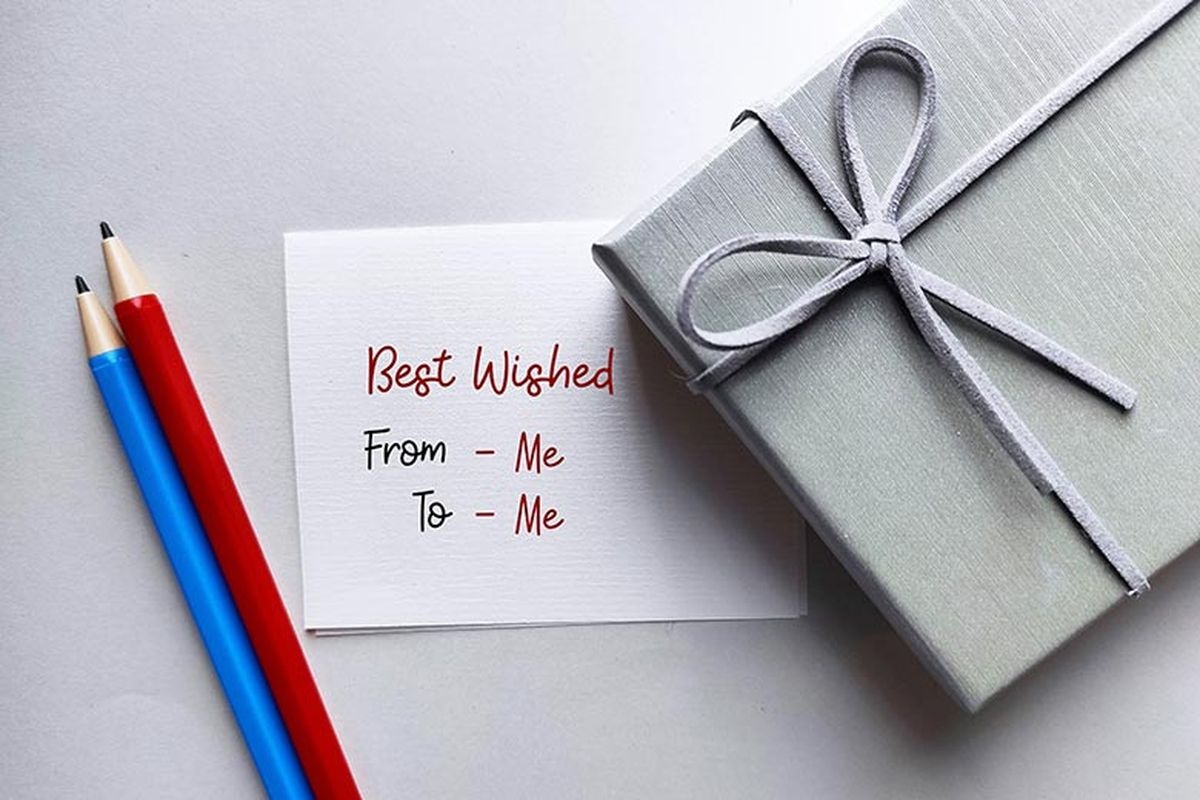 Best Wished
From - Me
To - Me